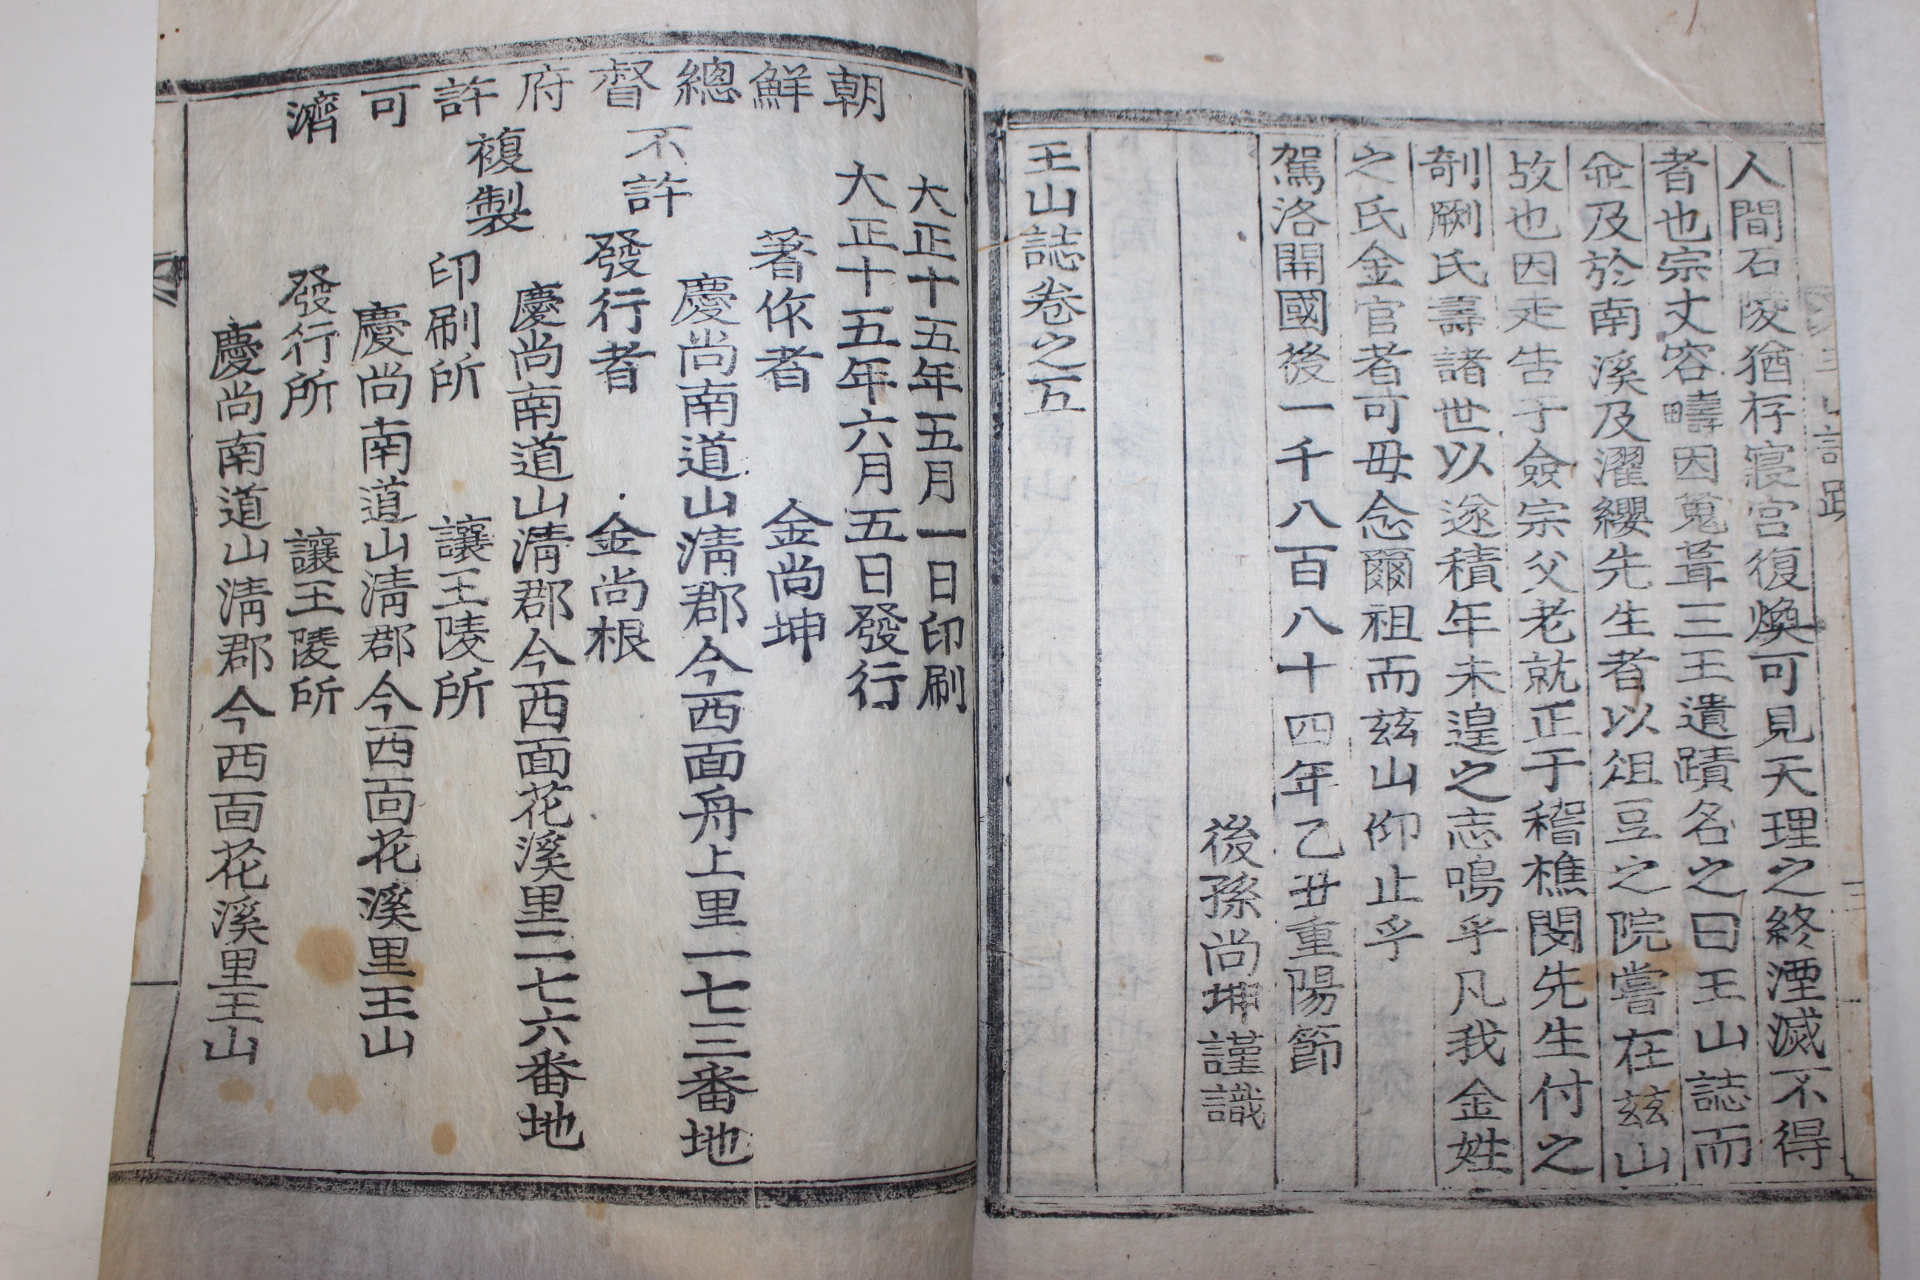 人間石陵猶存寢宮復煥可見天理之終湮滅不得
者也宗丈容疇因蒐葺三王遺蹟名之曰王山誌而
命及於南溪及濯纓先生者以俎豆之院嘗在玆山
故也因走告于僉宗父老就正于稽樵閔先生付之
剞劂氏壽諸世以遂積年未遑之志嗚乎凡我金姓
之氏金官者可毋念爾祖而玆山仰止乎
駕洛開國後一千八百八十四年乙丑重陽節
後孫尚坤謹識
王山誌卷之五
朝鮮總督府許可濟
大正十五年五月一日印刷
大正十五年六月五日發行
著作者 金尚坤
慶尚南道山淸郡今西面舟上里一七三番地
不許
複製
發行者 金尚根
慶尚南道山淸郡今西面花溪里二七六番地
印刷所 讓王陵所
慶尚南道山淸郡今西面花溪里王山
發行所 讓王陵所
慶尚南道山淸郡今西面花溪里王山